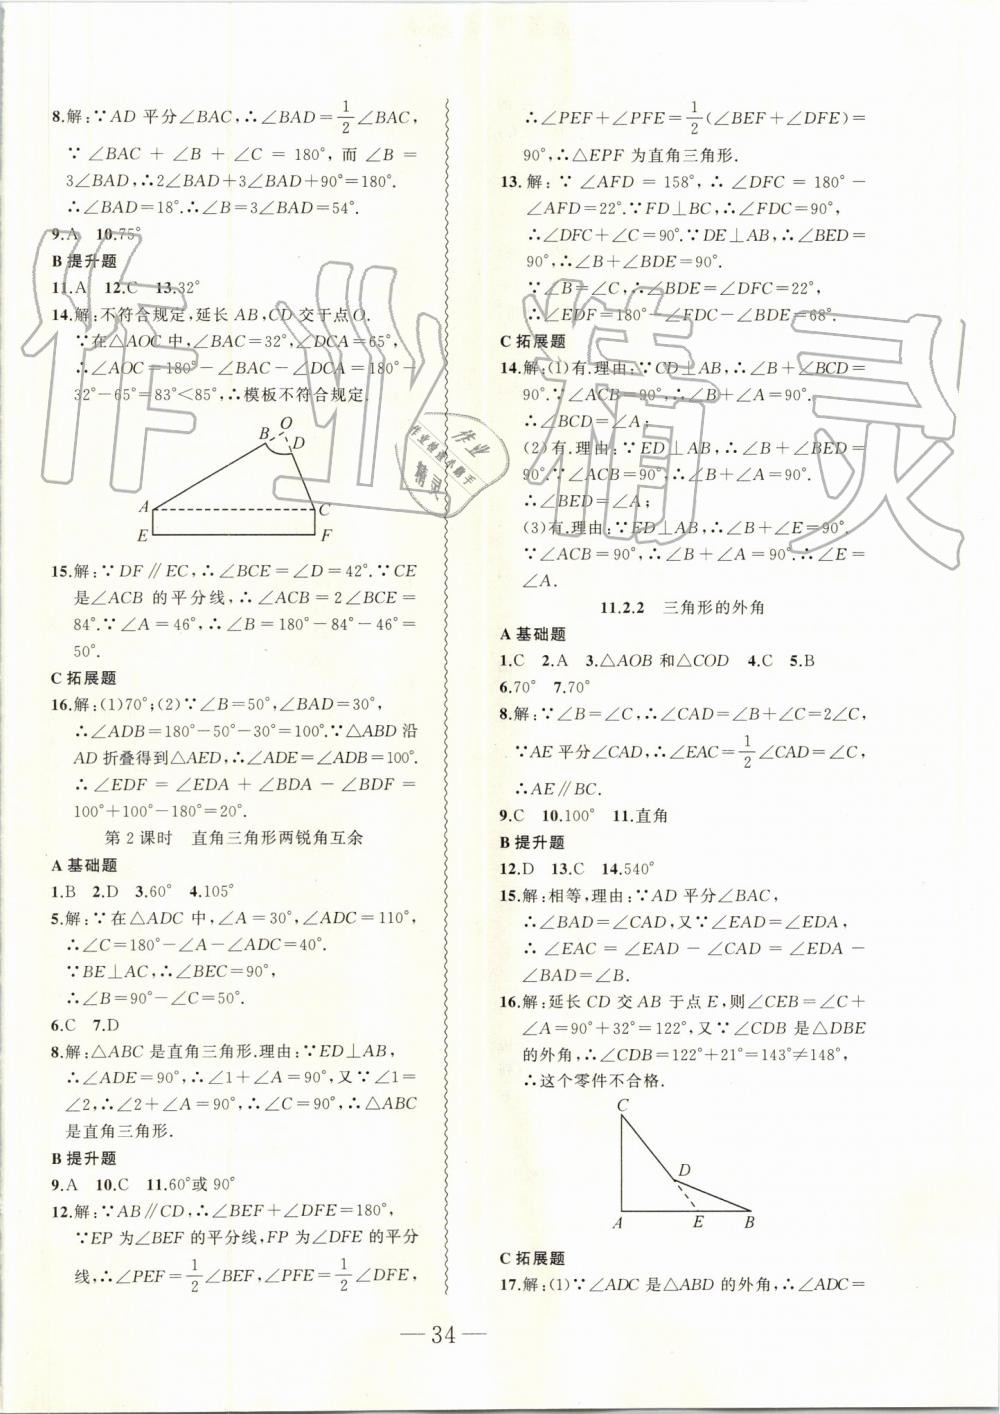 8.解:∵AD 平分∠BAC,∴∠BAD=1/2∠BAC,
∵ ∠BAC + ∠B + ∠C = 180°, 而 ∠B =
3∠BAD,∴2∠BAD+3∠BAD+90°=180°.
∴∠BAD=18°.∴∠B=3∠BAD=54°.
9.A 10.75°
B 提升题
11.A 12.C 13.32°
14.解:不符合规定,延长 AB,CD 交于点O.
∵在△AOC 中,∠BAC=32°,∠DCA=65°,
∴∠AOC=180°-∠BAC-∠DCA=180°-
32°-65°=83°<85°,∴模板不符合规定.
O
B
D
A
C
E
F
15.解:∵DF∥EC,∴∠BCE=∠D=42°.∵CE
是∠ACB 的平分线,∴∠ACB=2∠BCE=
84°.∵∠A=46°,∴∠B=180°-84°-46°=
50°.
C 拓展题
16.解:(1)70°;(2)∵∠B=50°,∠BAD=30°,
∴∠ADB=180°-50°-30°=100°.∵△ABD 沿
AD 折叠得到△AED,∴∠ADE=∠ADB=100°.
∴∠EDF = ∠EDA + ∠BDA - ∠BDF =
100°+100°-180°=20°.
第 2 课时 直角三角形两锐角互余
A 基础题
1.B 2.D 3.60° 4.105°
5.解:∵在△ADC 中,∠A=30°,∠ADC=110°,
∴∠C=180°-∠A-∠ADC=40°.
∵BE⊥AC,∴∠BEC=90°,
∴∠B=90°-∠C=50°.
6.C 7.D
8.解:△ABC 是直角三角形.理由:∵ED⊥AB,
∴∠ADE=90°,∴∠1+∠A=90°,又∵∠1=
∠2,∴∠2+∠A=90°,∴∠C=90°,∴△ABC
是直角三角形.
B 提升题
9.A 10.C 11.60°或 90°
12.解:∵AB∥CD,∴∠BEF+∠DFE=180°,
∵EP 为∠BEF 的平分线,FP 为∠DFE 的平分
线,∴∠PEF=1/2∠BEF,∠PFE=1/2∠DFE,
∴∠PEF+∠PFE=1/2(∠BEF+∠DFE)=
90°,∴△EPF 为直角三角形.
13.解:∵ ∠AFD = 158°,∴ ∠DFC = 180° -
∠AFD=22°.∵FD⊥BC,∴∠FDC=90°,
∴∠DFC+∠C=90°.∵DE⊥AB,∴∠BED=
90°,∴∠B+∠BDE=90°.
∵∠B=∠C,∴∠BDE=∠DFC=22°,
∴∠EDF=180°-∠FDC-∠BDE=68°.
C 拓展题
14.解:(1)有.理由:∵CD⊥AB,∴∠B+∠BCD=
90°.∵∠ACB=90°,∴∠B+∠A=90°.
∴∠BCD=∠A;
(2)有.理由:∵ED⊥AB,∴∠B+∠BED=
90°.∵∠ACB=90°,∴∠B+∠A=90°.
∴∠BED=∠A;
(3)有.理由:∵ED⊥AB,∴∠A+∠E=90°.
∵∠ACB=90°,∴∠B+∠A=90°.∴∠E=
∠A.
11.2.2 三角形的外角
A 基础题
1.C 2.A 3.△AOB 和△COD 4.C 5.B
6.70° 7.70°
8.解:∵∠B=∠C,∴∠CAD=∠B+∠C=2∠C,
∵AE 平分∠CAD,∴∠EAC=1/2∠CAD=∠C,
∴AE∥BC.
9.C 10.100° 11.直角
B 提升题
12.D 13.C 14.540°
15.解:相等,理由:∵AD 平分∠BAC,
∴∠BAD=∠CAD,又∵∠EAD=∠EDA,
∴ ∠EAC = ∠EAD - ∠CAD = ∠EDA -
∠BAD=∠B.
16.解:延长 CD 交 AB 于点 E,则∠CEB=∠C+
∠A=90°+32°=122°,又∵∠CDB 是△DBE
的外角,∴∠CDB=122°+21°=143°≠148°,
∴这个零件不合格.
C
D
A
E
B
C 拓展题
17.解:(1)∵∠ADC 是△ABD 的外角,∴∠ADC=
— 34 —
作业精灵
作业
作业检查小助手
精灵